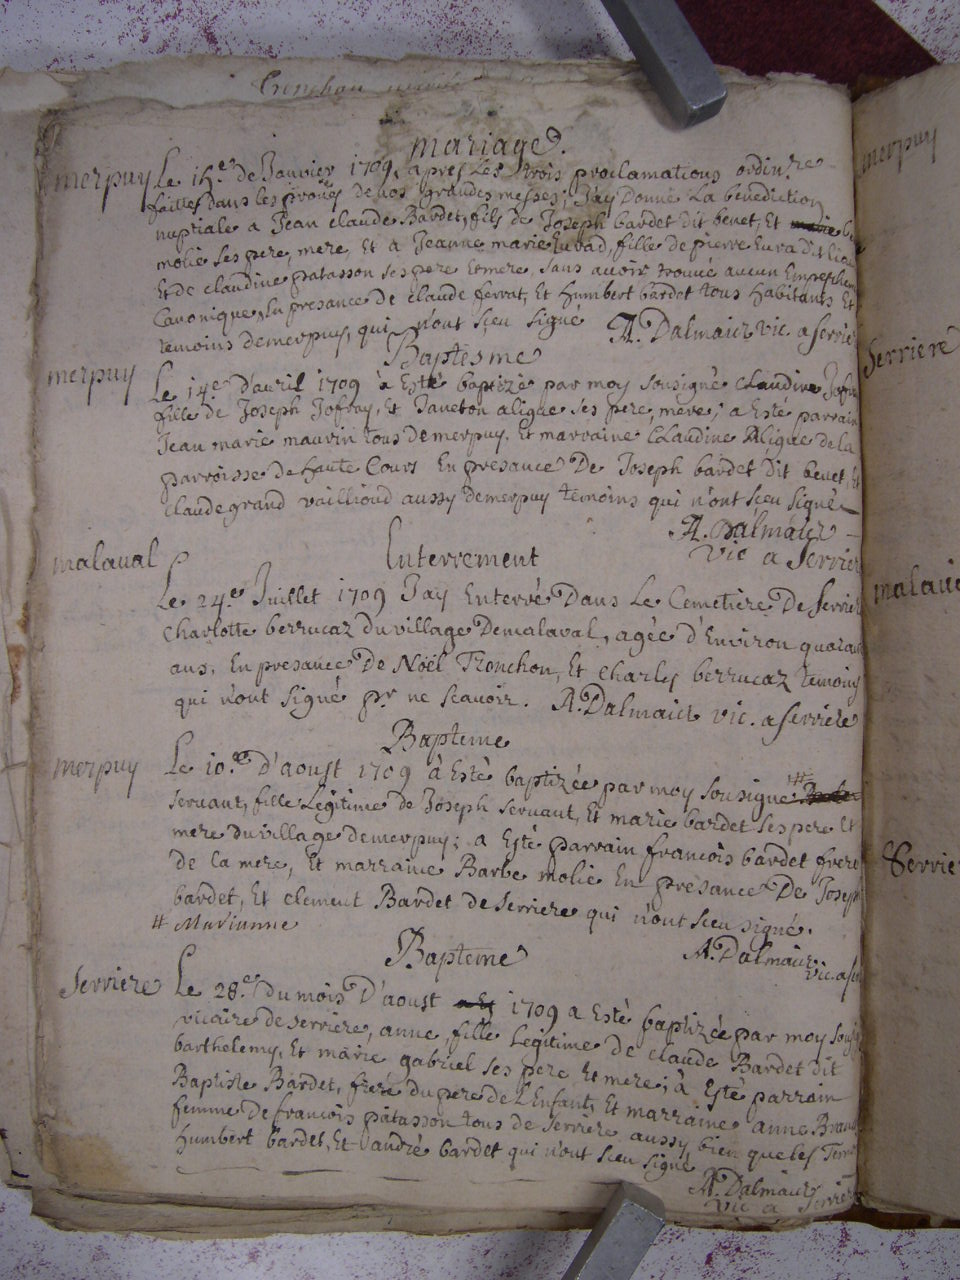 mariage.
merpuy Le 15.e de Janvier 1709, apres Les trois proclamations ordin.re
faittes dans les prones de nos grandes messes, J'ay Donné La benediction
nuptiale a Jean claude Bardet, fils de Joseph bardet dit benet, Et
molie ses pere, mere, Et a Jeanne marie Juvad, fille de pierre Juva dit
Et de claudine patasson ses pere Et mere, sans avoir trouvé aucun Empeschem
Canonique, En presance De claude ferrat, Et Humbert bardet tous Habitants Et
temoins demerpuy, qui n'ont sceu signé A. Dalmaiz vic. a serrier
Baptesme
merpuy Le 14.e d'avril 1709 à Esté baptizé par moy sousigné Claudine Jofra
fille de Joseph Jofray, Et Janeton aligue ses pere, mere; a Esté parrain
Jean marie maurin tous demerpuy, Et marraine Claudine Aligue de la
parroisse de haute Cours En presance De Joseph bardet dit benet, Et
claude grand vaillioud aussy demerpuy temoins qui n'ont sceu signé
A. Dalmaiz
vic a serrier
malaval Enterrement
Le 24.e Juillet 1709 J'ay Enterré Dans Le Cemetiere De serrier
Charlotte berrucaz du village Demalaval, agée d'Environ quaran
ans, En presance De Noël Tronchon, Et charles berrucaz temoins
qui n'ont signé pr ne scavoir. A. Dalmaiz vic. a serriere
Bapteme
merpuy Le 10.e D'aoust 1709 à Esté baptizée par moy sousigné #
servant, fille Legitime de Joseph servant, Et marie bardet ses pere Et
mere du village demerpuy; a Esté parrain francois bardet frere
de la mere, Et marraine Barbe molie En presance De Joseph
bardet, Et clement Bardet de serriere qui n'ont sceu signé.
# Marianne
A. Dalmaiz
vic. a se
Bapteme
serriere Le 28.e du mois D'aoust 1709 a Esté baptizée par moy sousig
vicaire de serriere, anne, fille Legitime de claude Bardet dit
barthelemy, Et marie gabriel ses pere Et mere; à Esté parrain
Baptiste Bardet, frere du pere de L'Enfant, Et marraine anne
femme de francois patasson tous de serriere aussy bien que les Tem
Humbert bardet, Et andré bardet qui n'ont sceu signé
A. Dalmaiz
vic a serrier
merpuy
serriere
malava
Serrie